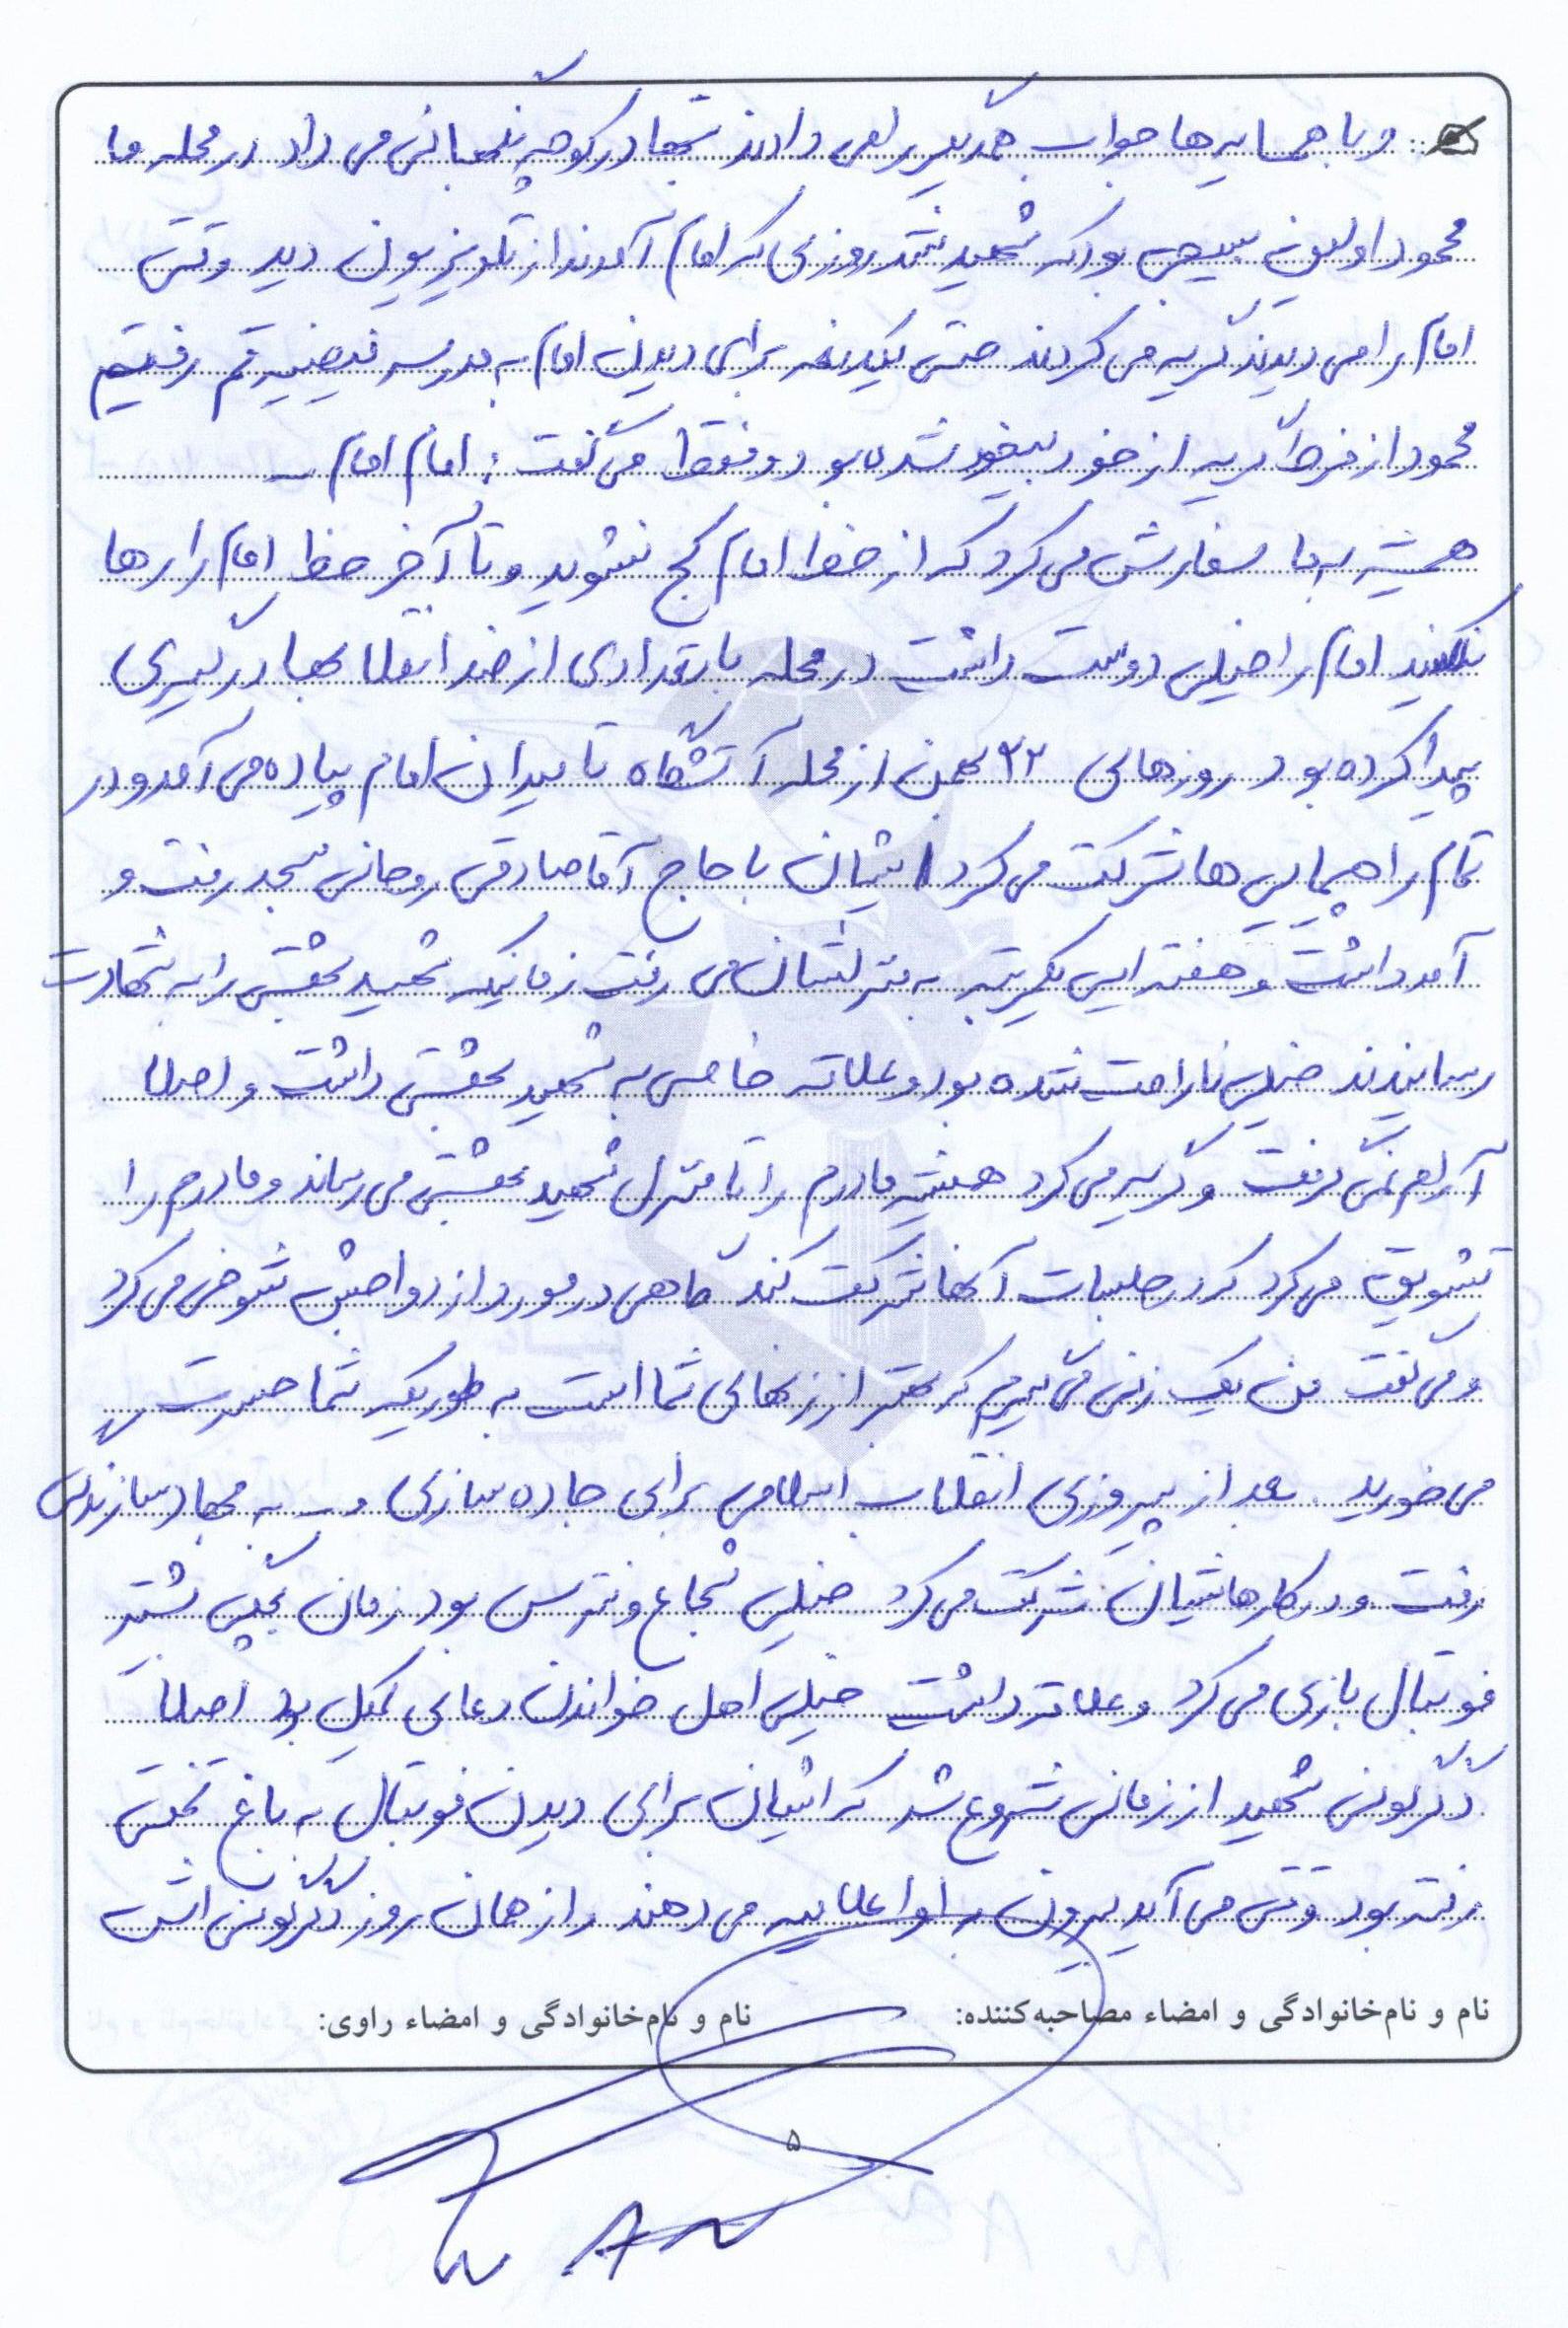 و با همسایه‌ها جواب همدیگر را می دادند شبها در کوچه نگهبانی می داد در محله ما
محمود اولین بسیجی بود که شهید شد روزی که امام آمدند از تلویزیون دید وقتی
امام را می دیدند گریه می کردند حتی یکدفعه برای دیدن امام به مدرسه فیضیه قم رفتیم
محمود از فرط گریه از خود بیخود شده بود و فقط می گفت : امام امام _
همیشه به ما سفارش می کرد که از خط امام کج نشوید و تا آخر خط امام را رها
نکنید امام را خیلی دوست داشت در محله با تعدادی از ضد انقلابها درگیری
پیدا کرده بود روزهای ۲۲ بهمن از محله آتشگاه تا میدان امام پیاده می آمد و در
تمام راهپیمایی ها شرکت می کرد ایشان با حاج آقا صادقی روحانی مسجد رفت و
آمد داشت و هفته ایی یکمرتبه به منزلشان می رفت زمانیکه شهید بهشتی را به شهادت
رسانیدند خیلی ناراحت شده بود و علاقه خاصی به شهید بهشتی داشت و اصلا
آرام نمی گرفت و گریه می کرد همیشه مادرم را تا منزل شهید بهشتی می رساند و مادرم را
تشویق می کرد که در جلسات آنها شرکت کند گاهی در مورد ازدواجش شوخی می کرد
و می گفت من یک زنی می گیرم که بهتر از زنهای شما است به طوریکه شما حسرت
می خورید . بعد از پیروزی انقلاب اسلامی برای جاده سازی و _ به جهاد سازندگی
رفت و در کارهاشان شرکت می کرد خیلی شجاع و نترس بود زمان بچگی بیشتر
فوتبال بازی می کرد و علاقه داشت خیلی اهل خواندن دعای کمیل بود اصلا
دگرگونی شهید از زمانی شروع شد که ایشان برای دیدن فوتبال به باغ تختی
رفته بود وقتی می آید بیرون به او اعلامیه می دهند و از همان روز دگرگونی اش
نام و نام‌خانوادگی و امضاء مصاحبه‌کننده: نام و نام‌خانوادگی و امضاء راوی:
۵